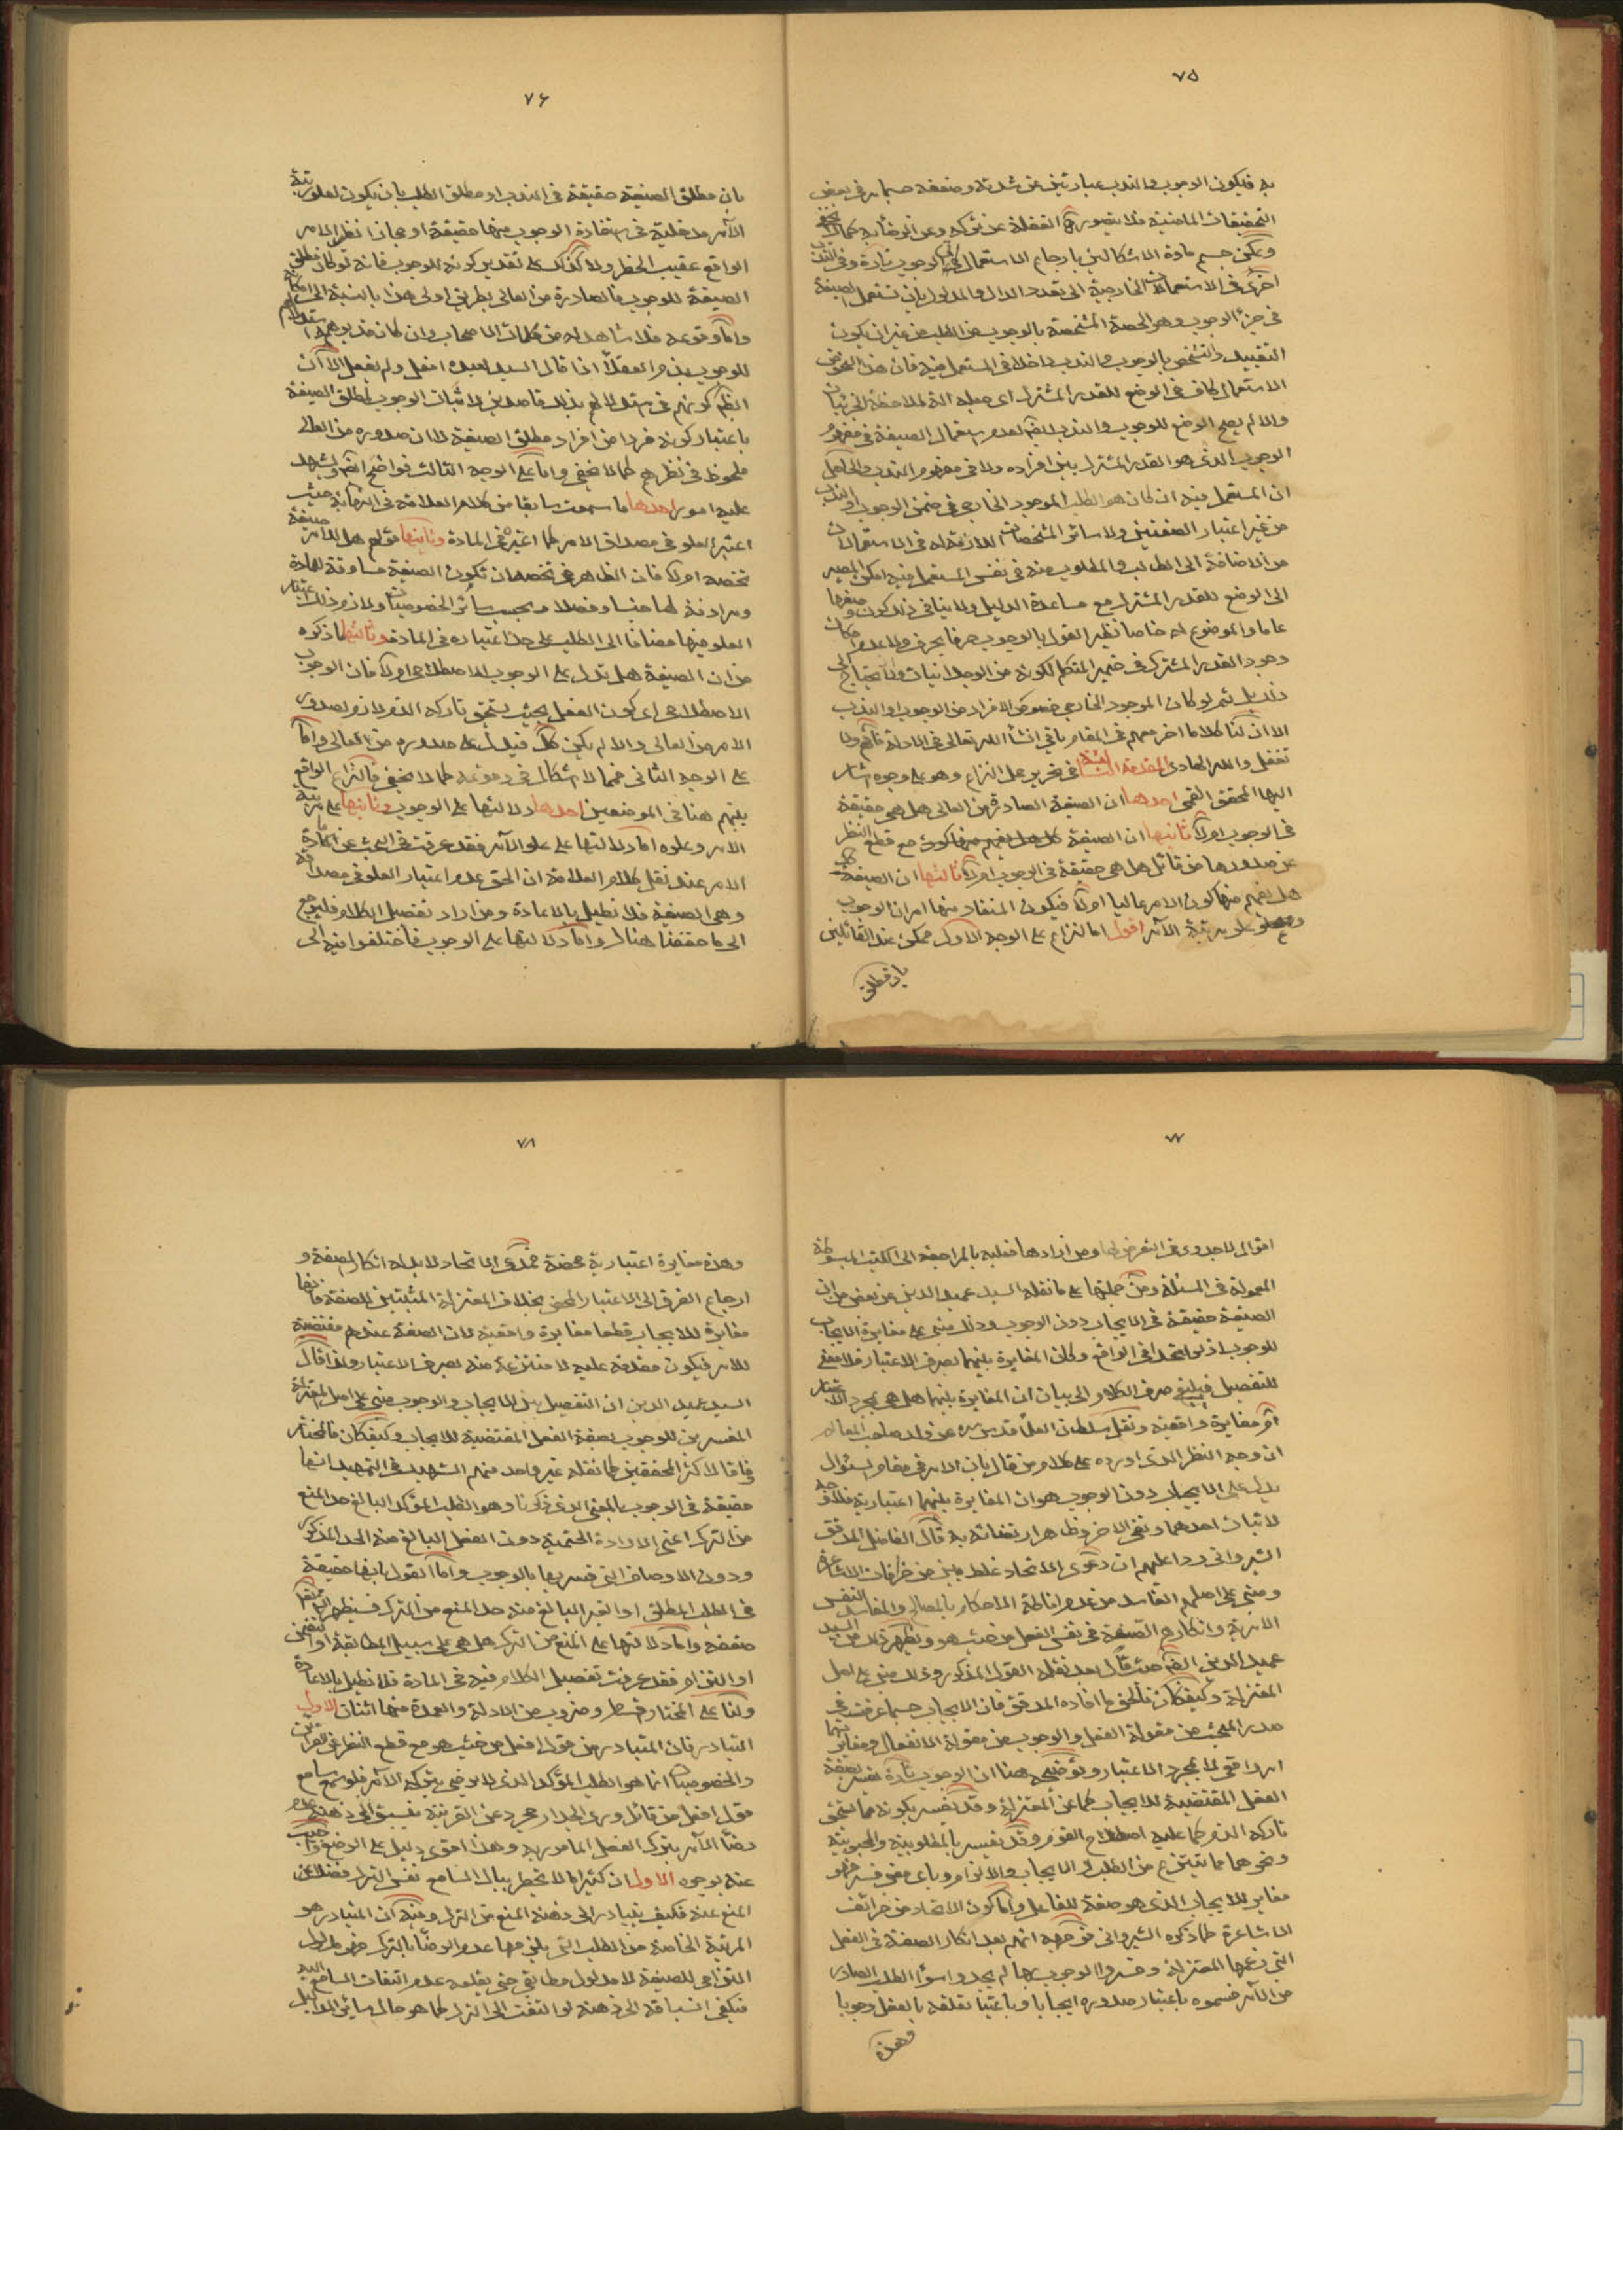 ٧٥
به فيكون الوجوب والندب عبارتين عن شدته وضعفه حسبما مر في بعض
التحقيقات الماضية فلا يتصور الغفلة عن تركه وعن الرضا به
ويمكن حسم مادة الاشكالين بارجاع الاستعمال في الوجوب تارة وفي الندب
اخرى في الاستعمالات الخارجية الى تعدد الدال والمدلول بان تستعمل الصيغة
في جزء الوجوب وهو الحصة المشخصة بالوجوب من الطلب من غير ان يكون
التقييد والتشخص بالوجوب والندب داخلا في المستعمل فيه فان هذا النحو من
الاستعمال كاف في الوضع للقدر المشترك اى جعله الة لملاحظة الجزئيات
والا لم يصح الوضع للوجوب والندب ايضا لعدم استعمال الصيغة في مفهوم
الوجوب الذي هو القدر المشترك بين افراده ولا في مفهوم الندب والحاصل
ان المستعمل فيه ان كان هو الطلب الموجود الخارجي في ضمن الوجوب او الندب
من غير اعتبار الصفتين ولا سائر المشخصات اللازمة له في الاستعمالات
من الاضافة الى الطالب والمطلوب منه في نفس المستعمل فيه امكن المصير
الى الوضع للقدر المشترك مع مساعدة الدليل ولا ينافي ذلك كون وضعها
عاما والموضوع له خاصا نظير القول بالوجوب حرفا بحرف ولا عدم امكان
وجود القدر المشترك في ضمير المتكلم لكونه من الوجدانيات ولا يحتاج الى
دليل ثم لو كان الموجود الخارجي خصوص الافراد من الوجوب او الندب
الا ان لنا كلاما اخر معهم في المقام ياتي انشاء الله تعالى في الادلة فافهم ولا
تغفل والله الهادى المقدمة الثالثة في تحرير محل النزاع وهو على وجوه اشار
اليها المحقق القمي احدها ان الصيغة الصادرة من العالي هل هي حقيقة
في الوجوب ام لا ثانيها ان الصيغة مع قطع النظر
عن صدورها من قائل هل هي حقيقة في الوجوب ام لا ثالثها ان الصيغة
هل يفهم منها كون الامر عاليا ام لا فيكون المنفاد منها امران الوجوب
وعلو مرتبة الآمر اقول اما النزاع على الوجه الاول ممكن عند القائلين
بان مطلق
٧٦
بان مطلق الصيغة حقيقة في الندب او مطلق الطلب بان يكون لعلو رتبة
الآمر مدخلية في استفادة الوجوب منها حقيقة او مجازا نظير الامر
الواقع عقيب الحظر ولا كذلك على تقدير كونه للوجوب فانه لو كان مطلق
الصيغة للوجوب فالصادرة من العالي بطريق اولى هذا بالنسبة الى امكانه
واما وقوعه فلا شاهد له من كلمات الاصحاب وان كان قد يوهمه استدلالهم
للوجوب بذم العقلاء اذا قال السيد لعبده افعل ولم يفعل الا ان
الظاهر كونهم في استدلالهم بذلك قاصدين لاثبات الوجوب لمطلق الصيغة
باعتبار كونه فردا من افراد مطلق الصيغة لا ان صدوره من العالي
ملحوظ في نظرهم كما لا يخفى واما على الوجه الثالث فواضح ايضا ويشهد
عليه امور احدها ما سمعت سابقا من كلام العلامة في النهاية حيث
اعتبر العلو في مصداق الامر كما اعتبره في المادة وثانيها قولهم هل للامر صيغة
تخصه ام لا فان الظاهر من تخصه ان تكون الصيغة مساوقة للمادة
ومرادفة لها جنسا وفصلا وبحسب سائر الخصوصيات ولازم ذلك اعتبار
العلو فيها مضافا الى الطلب على حد اعتباره في المادة وثالثها ما ذكره
من ان الصيغة هل تدل على الوجوب الاصطلاحي ام لا فان الوجوب
الاصطلاحي اى كون الفعل بحيث يستحق تاركه الذم لازم لصدور
الامر من العالى والا لم يكن كك فيدل على صدوره من العالى واما
على الوجه الثاني فمما لا اشكال في وقوعه كما لا يخفى فالنزاع الواقع
بينهم هنا في الموضعين احدهما دلالتها على الوجوب وثانيها على مرتبة
الامر وعلوه اما دلالتها على علو الآمر فقد عرفت في البحث عن مادة
الامر عند نقل كلام العلامة ان الحق عدم اعتبار العلو في مصداقه
وهي الصيغة فلا نطيل بالاعادة ومن اراد تفصيل الكلام فليرجع
الى ما حققنا هناك واما دلالتها على الوجوب فاختلفوا فيه الى
٧٧
اقوال لا جدوى في التعرض لها ومن ارادها فعليه بالمراجعة الى الكتب المبسوطة
المعمولة في المسئلة ومن جملتها على ما نقله السيد عميد الدين عن بعض من ان
الصيغة حقيقة في الايجاب دون الوجوب وذلك مبني على مغايرة الايجاب
للوجوب اذ لو اتحدا في الواقع وكان المغايرة بينهما بصرف الاعتبار فلا معنى
للتفصيل فينبغي صرف الكلام الى بيان ان المغايرة بينهما هل هي بمجرد الاعتبار
او مغايرة واقعية ونقل سلطان العلماء قدس سره عن ولد صاحب المعالم
ان وجه النظر الذي اورده على كلام من قال بان الامر في مقام السئوال
يدل على الايجاب دون الوجوب هو ان المغايرة بينهما اعتبارية فلا وجه
لاثبات احدهما ونفي الاخر وظاهر ارتضائه به قال الفاضل المدقق
الشيرواني ردا عليهم ان دعوى الاتحاد غلط مبني من خرافات الاشاعرة
ومبني على اصلهم الفاسد من عدم اناطة الاحكام بالمصالح والمفاسد النفس
الامرية وانكارهم الصفة في نفس الفعل من حيث هو ويظهر ذلك من السيد
عميد الدين ايضا حيث قال بعد نقله القول المذكور وذلك مبني على اصل
المعتزلة وكيفكان فالحق ما افاده المدقق فان الايجاب حسبما عرفت في
صدر المبحث من مقولة الفعل والوجوب من مقولة الانفعال ومغايرتهما
امر واقعي لا بمجرد الاعتبار وتوضيحه هنا ان الوجوب تارة يفسر بصفة
الفعل المقتضية للايجاب كما عن المعتزلة وقد يفسر بكونه مما يستحق
تاركه الذم كما عليه اصطلاح القوم وقد يفسر بالمطلوبية والمحبوبية
ونحوهما مما ينتزع من الطلب والايجاب والالزام وباى معنى فسر فهو
مغاير للايجاب الذي هو صفة للفاعل واما كون الاتحاد من خرائف
الاشاعرة كما ذكره الشيرواني فوجهه انهم بعد انكار الصفة في الفعل
التي زعمها المعتزلة وفسروا الوجوب بها لم يجدوا سوى الطلب الصادر
من الآمر فسموه باعتبار صدوره ايجابا وباعتبار تعلقه بالفعل وجوبا
وهذه
٧٨
وهذه مغايرة اعتبارية محضة فمدعى الاتحاد لا بد له انكار الصفة و
ارجاع الفرق الى الاعتبار المحض بخلاف المعتزلة المثبتين للصفة فانها
مغايرة للايجاب قطعا مغايرة واقعية لان الصفة عندهم مقتضية
للامر فيكون مقدمة عليه لا منتزعة منه بصرف الاعتبار ولذا قال
السيد عميد الدين ان التفصيل بين الايجاب والوجوب مبني على اصل المعتزلة
المفسرين للوجوب بصفة الفعل المقتضية للايجاب وكيفكان فالمختار
وفاقا لاكثر المحققين كما نقله غير واحد منهم الشهيد في التمهيد انها
حقيقة في الوجوب بالمعنى الذي ذكرنا وهو الطلب المؤكد البالغ حد المنع
من الترك اعني الارادة الحتمية دون الفعل البالغ منه الحد المذكور
ودون الاوصاف التي فسر بها بالوجوب واما القول بانها حقيقة
في الطلب المطلق او الغير البالغ منه حد المنع من الترك فسيظهر لك
ضعفه واما دلالتها على المنع من الترك هل هي على سبيل المطابقة او التضمن
او التزام فقد عرفت تفصيل الكلام فيه في المادة فلا نطيل بالاعادة
ولنا على المختار وضروب من الادلة والعمدة منها اثنان الاول
التبادر فان المتبادر من قول افعل من حيث هو مع قطع النظر عن القرائن
والخصوصيات انما هو الطلب المؤكد الذي لا يرضى بتركه الآمر فلو سمع سامع
قول افعل من قائل وراى الجدار مجرد عن القرينة يسبق الى ذهنه عدم
رضاء الآمر بترك الفعل المامور به وهذا اقوى دليل على الوضع واجيب
عنه بوجوه الاول ان كثيرا ما لا يخطر ببال السامع نفس الترك فضلا عن
المنع عنه فكيف يتبادر الى ذهنه المنع من الترك وفيه ان المتبادر هو
المرتبة الخاصة من الطلب التي يلزمها عدم الرضا بالترك فهو مدلول
التزامي للصيغة لا مدلول مطابقي حتى يقدح عدم التفات السامع اليه
فيكفي انسباقه الى ذهنه لو التفت الى الترك كما هو حال سائر المداليل